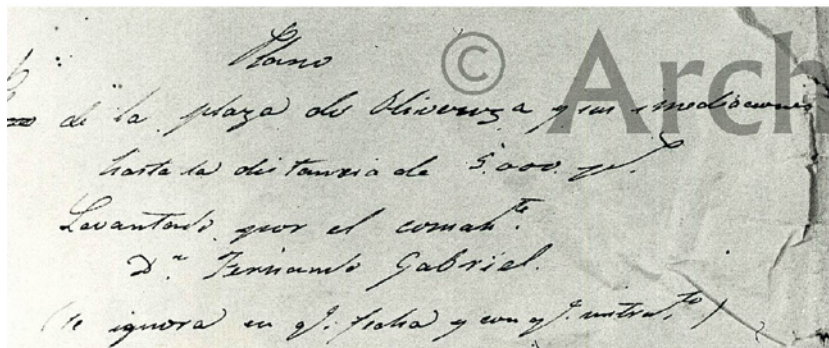 Plano
© Arch
de la plaza de Olivenza y sus inmediaciones
hasta la distancia de 5.000 p.^s
Levantado por el coman.^te
D.^n Fernando Gabriel.
(Se ignora en q.^e fecha y con q.^e instrum.^to)